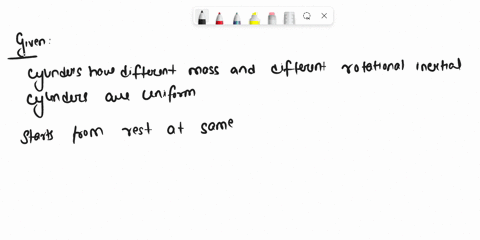 Given:
cylinders how different mass and different rotational inertial
cylinders are uniform
starts from rest at same